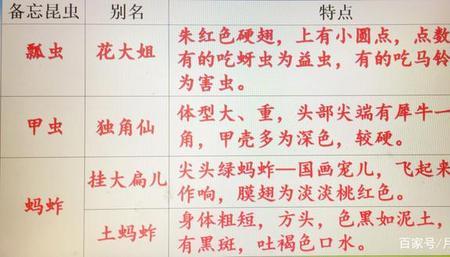 备忘昆虫 别名 特点
瓢虫 花大姐 朱红色硬翅，上有小圆点，点数
有的吃蚜虫为益虫，有的吃马铃
为害虫。
甲虫 独角仙 体型大、重，头部尖端有犀牛一
角，甲壳多为深色，较硬。
蚂蚱 挂大扁儿 尖头绿蚂蚱—国画宠儿，飞起来
作响，膜翅为淡淡桃红色。
土蚂蚱 身体粗短，方头，色黑如泥土，
有黑斑，吐褐色口水。
百家号/月